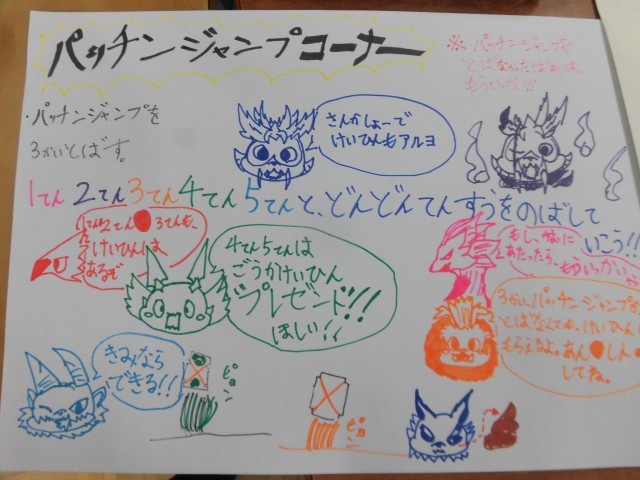 パッチンジャンプコーナー
※ パッチンジャンプを
とばなかったばあいは、
もういっかい!!
・パッチンジャンプを
3かいとばす。
さんかしょーで
けいひんもアルヨ
1てん 2てん 3てん 4てん 5てんと、どんどんてんすうをのばして
いこう!!
1てん2てん 3てんも、
けいひんは
あるぞ
4てん5てんは
ごうかけいひん
プレゼント!!
ほしい!!
もし、
あたったら、もういっかいじゃ
3かい、パッチンジャンプが
とばなくても、けいひん
もらえるよ。あんしん
してね。
きみなら
できる!!
ピョン
ピョン